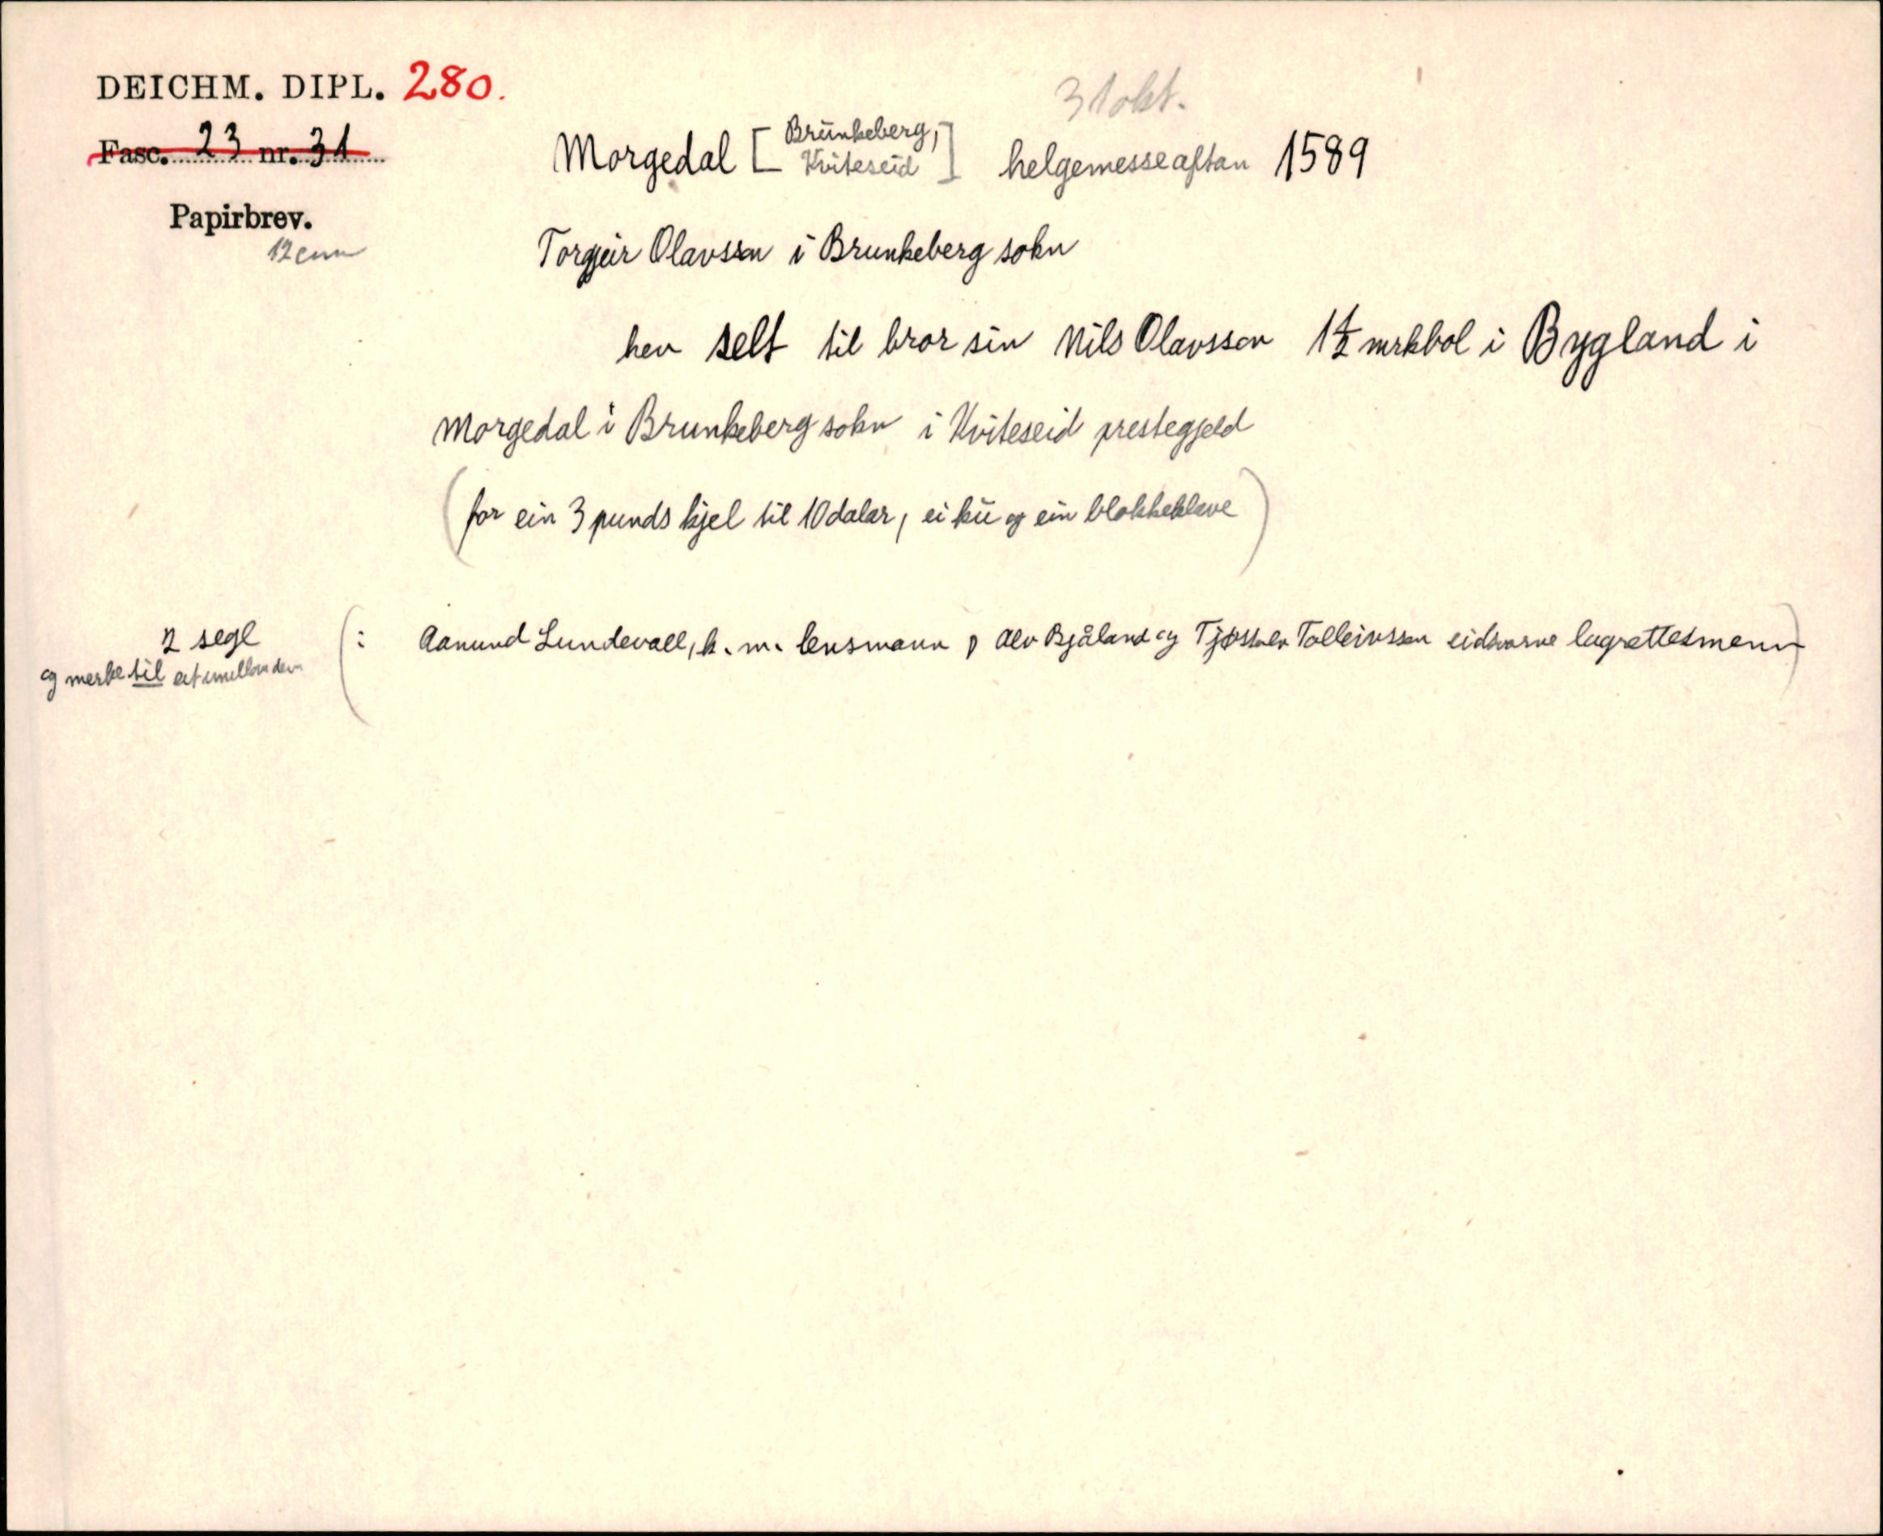 DEICHM. DIPL. 280.
31 okt.
Fasc. 23 nr. 31
Morgedal [Brunkeberg, Kviteseid] helgemesseaftan 1589
Papirbrev.
12 cm
Torgjeir Olavsson i Brunkeberg sokn
hev selt til bror sin Nils Olavsson 1½ mrkbol i Bygland i
Morgedal i Brunkeberg sokn i Kviteseid prestegjeld
(for ein 3 punds kjel til 10 dalar, ei ku og ein blokkeklave)
2 segl
og merke til eit imillom dem
(: Aanund Lundevall, k. m. lensmann, Alv Bjåland og Tjøstolv Tolleivsson eidsvorne lagrettesmenn)